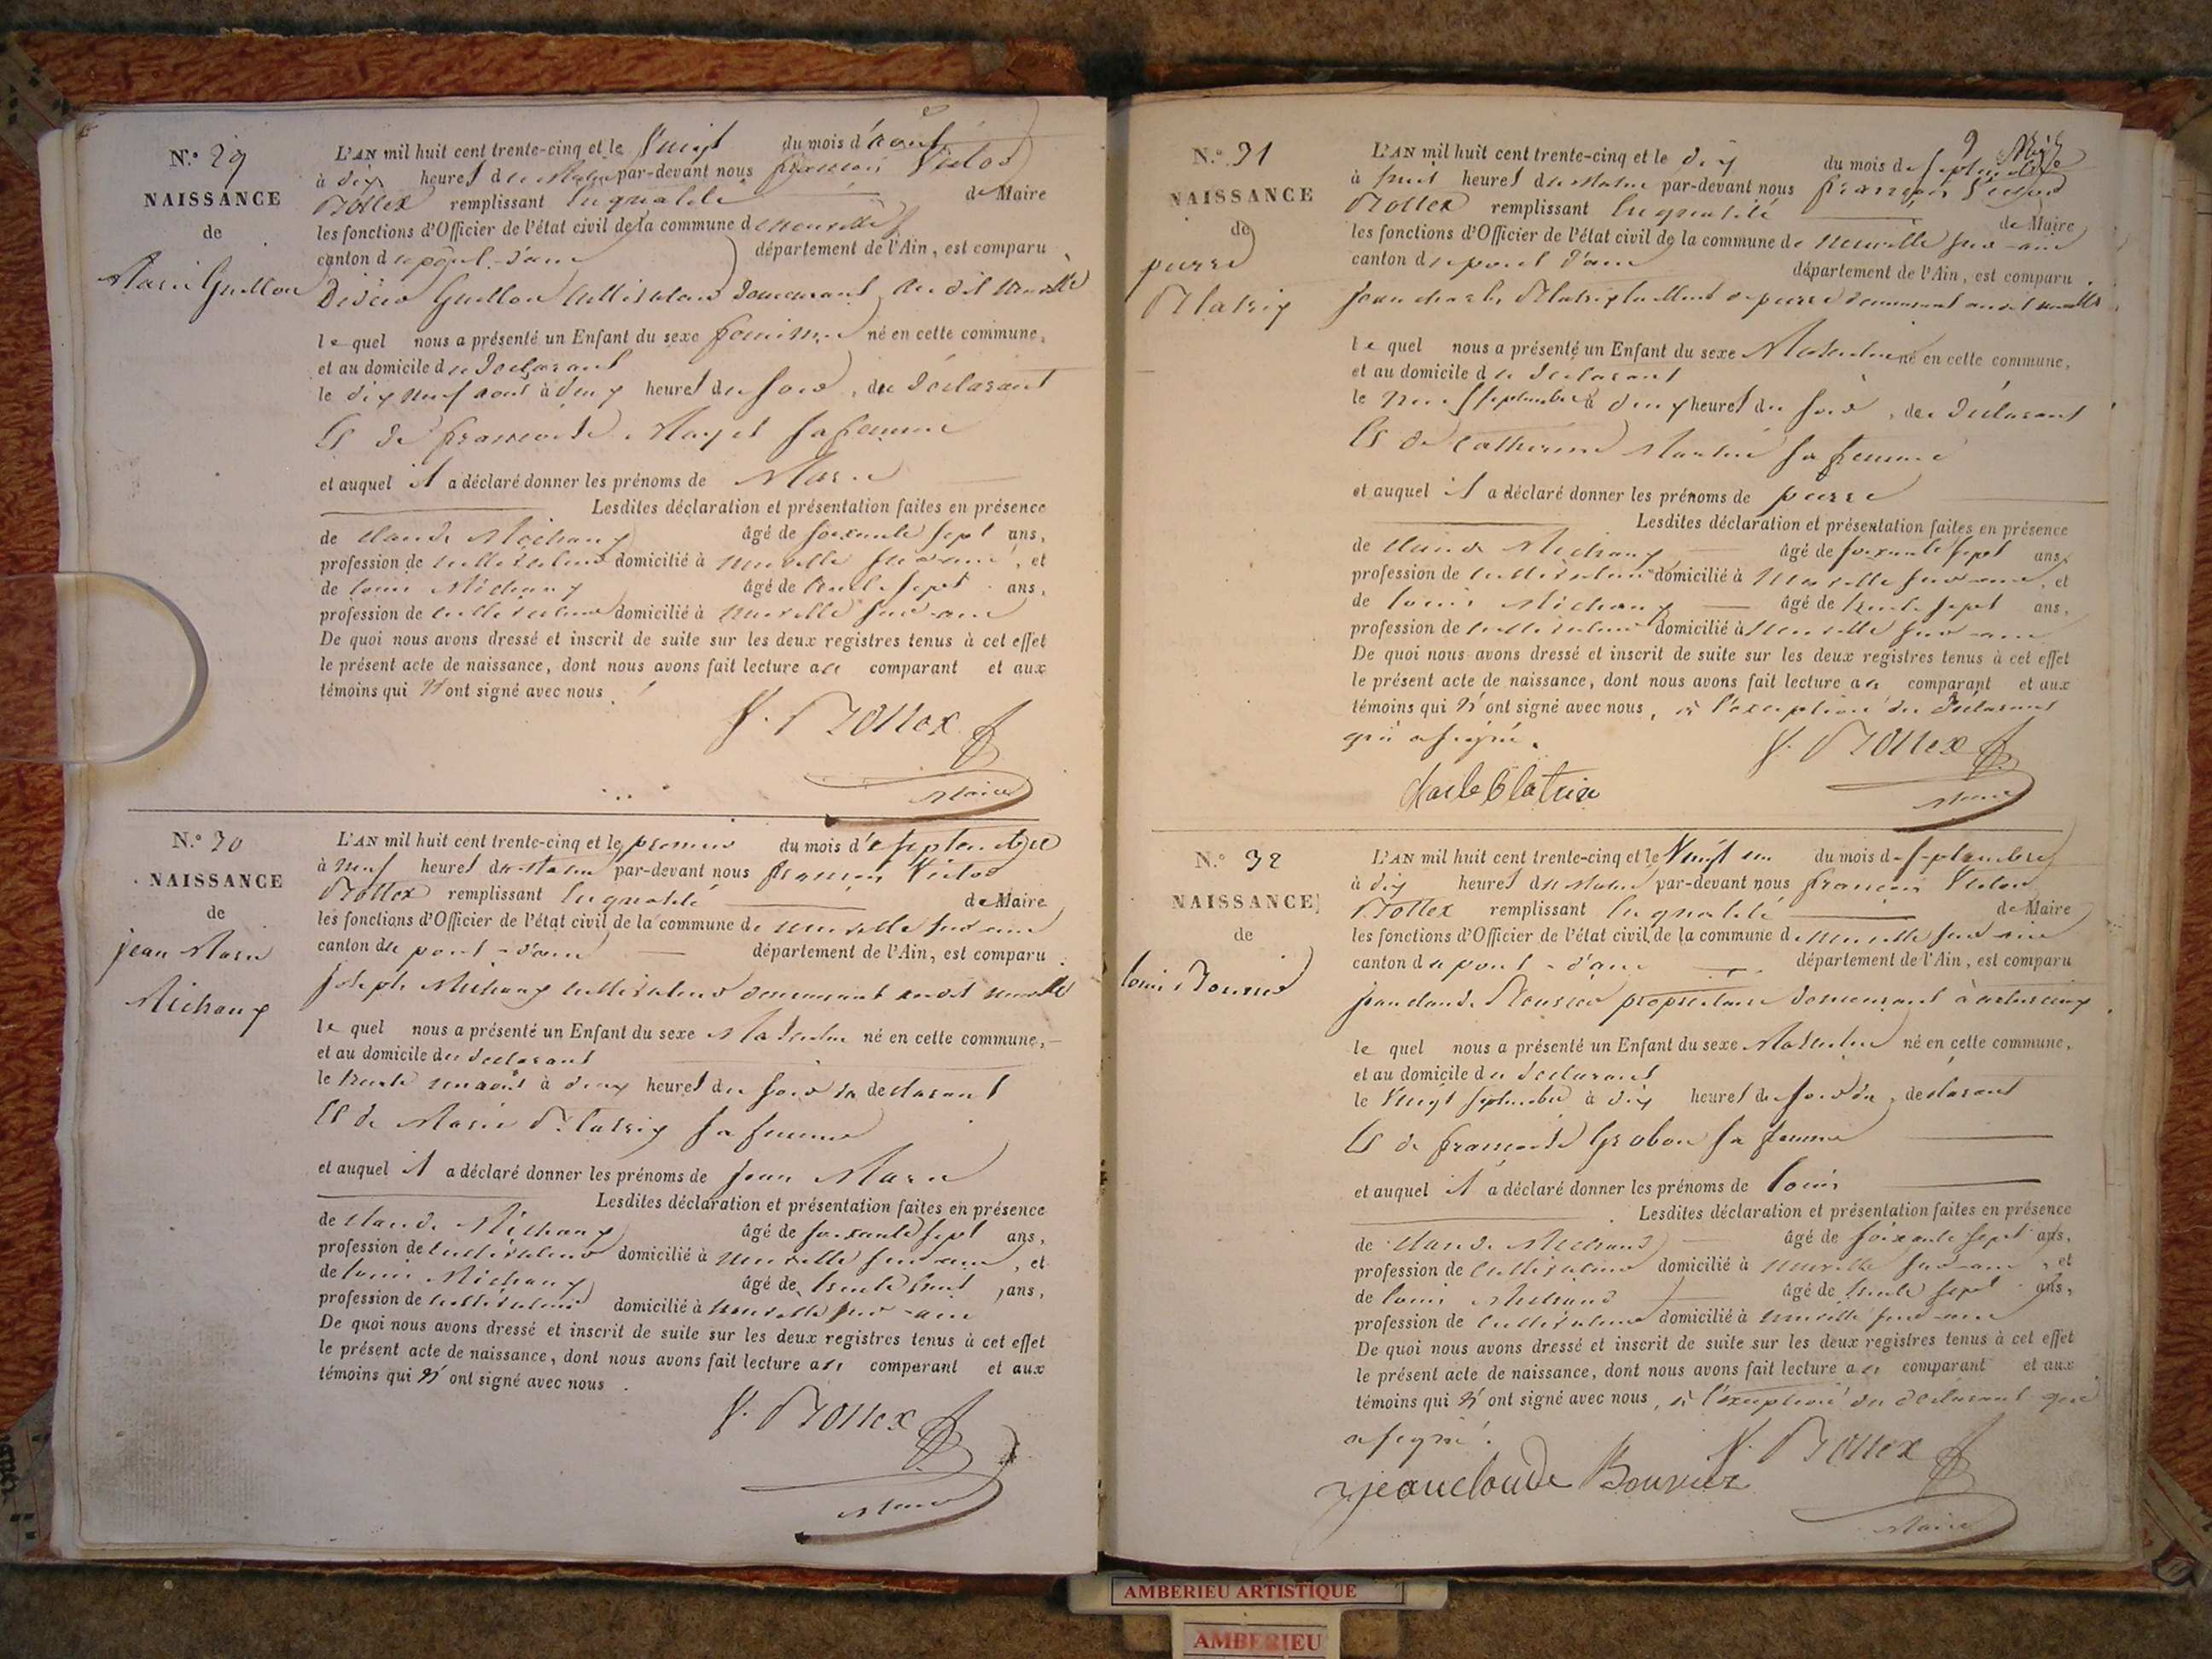 N.° 29
NAISSANCE
de
Marie Guillon
L'AN mil huit cent trente-cinq et le vingt du mois d'août
à dix heures du matin par-devant nous françois Victor
Bottex remplissant en qualité de Maire
les fonctions d'Officier de l'état civil de la commune de neuville
canton de pont-d'ain département de l'Ain, est comparu
Guillon cultivateur demeurant au dit neuville
lequel nous a présenté un Enfant du sexe feminin né en cette commune,
et au domicile du declarant
le dix neuf aout à deux heures du soir, du declarant
Et de francoise Mayet sa femme
et auquel il a déclaré donner les prénoms de Marie
Lesdites déclaration et présentation faites en présence
de claude Michaux âgé de soixante sept ans,
profession de cultivateur domicilié à neuville sur-ain, et
de louis Michaux âgé de trente sept ans,
profession de cultivateur domicilié à neuville sur-ain
De quoi nous avons dressé et inscrit de suite sur les deux registres tenus à cet effet
le présent acte de naissance, dont nous avons fait lecture au comparant et aux
témoins qui n'ont signé avec nous.
V. Bottex
Maire
N.° 30
NAISSANCE
de
jean Marie
Michaux
L'AN mil huit cent trente-cinq et le premier du mois d'e septembre
à neuf heures du matin par-devant nous françois Victor
Bottex remplissant en qualité de Maire
les fonctions d'Officier de l'état civil de la commune de neuville sur ain
canton de pont-d'ain département de l'Ain, est comparu
joseph Michaux cultivateur demeurant audit neuville
lequel nous a présenté un Enfant du sexe Masculin né en cette commune,
et au domicile du declarant
le trente un aout à deux heures du soir du declarant
Et de Marie Blatrix sa femme
et auquel il a déclaré donner les prénoms de jean Marie
Lesdites déclaration et présentation faites en présence
de claude Michaux âgé de soixante sept ans,
profession de cultivateur domicilié à neuville sur ain, et
de louis Michaux âgé de trente huit ans,
profession de cultivateur domicilié à neuville sur-ain
De quoi nous avons dressé et inscrit de suite sur les deux registres tenus à cet effet
le présent acte de naissance, dont nous avons fait lecture au comparant et aux
témoins qui n'ont signé avec nous.
V. Bottex
Maire
N.° 31
NAISSANCE
de
pierre
Blatrix
L'AN mil huit cent trente-cinq et le dix du mois de septembre
à huit heures du matin par-devant nous françois Victor
Bottex remplissant en qualité de Maire
les fonctions d'Officier de l'état civil de la commune de neuville sur-ain
canton de pont d'ain département de l'Ain, est comparu
jean charles Blatrix de pierre demeurant audit neuville
lequel nous a présenté un Enfant du sexe Masculin né en cette commune,
et au domicile du declarant
le neuf septembre à deux heures du soir, du declarant
Et de Catherine Martin sa femme
et auquel il a déclaré donner les prénoms de pierre
Lesdites déclaration et présentation faites en présence
de claude Michaux âgé de soixante sept ans,
profession de cultivateur domicilié à neuville sur-ain, et
de louis Michaux âgé de trente sept ans,
profession de cultivateur domicilié à neuville sur-ain
De quoi nous avons dressé et inscrit de suite sur les deux registres tenus à cet effet
le présent acte de naissance, dont nous avons fait lecture au comparant et aux
témoins qui n'ont signé avec nous, à l'exception du declarant
qui a signé.
V. Bottex
Maire
N.° 32
NAISSANCE
de
louis Bouvier
L'AN mil huit cent trente-cinq et le Vingt un du mois de septembre
à dix heures du matin par-devant nous françois Victor
Bottex remplissant en qualité de Maire
les fonctions d'Officier de l'état civil de la commune de neuville sur ain
canton de pont-d'ain département de l'Ain, est comparu
jean claude Bouvier proprietaire demeurant à
lequel nous a présenté un Enfant du sexe Masculin né en cette commune,
et au domicile du declarant
le Vingt septembre à dix heures du soir du, declarant
Et de francoise Grobon sa femme
et auquel il a déclaré donner les prénoms de louis
Lesdites déclaration et présentation faites en présence
de claude Michaud âgé de soixante sept ans,
profession de cultivateur domicilié à neuville sur-ain, et
de louis Michaud âgé de trente sept ans,
profession de cultivateur domicilié à neuville sur-ain
De quoi nous avons dressé et inscrit de suite sur les deux registres tenus à cet effet
le présent acte de naissance, dont nous avons fait lecture au comparant et aux
témoins qui n'ont signé avec nous, à l'exception du declarant qui
a signé.
V. Bottex
jean claude Bouvier
Maire
AMBERIEU ARTISTIQUE
AMBERIEU